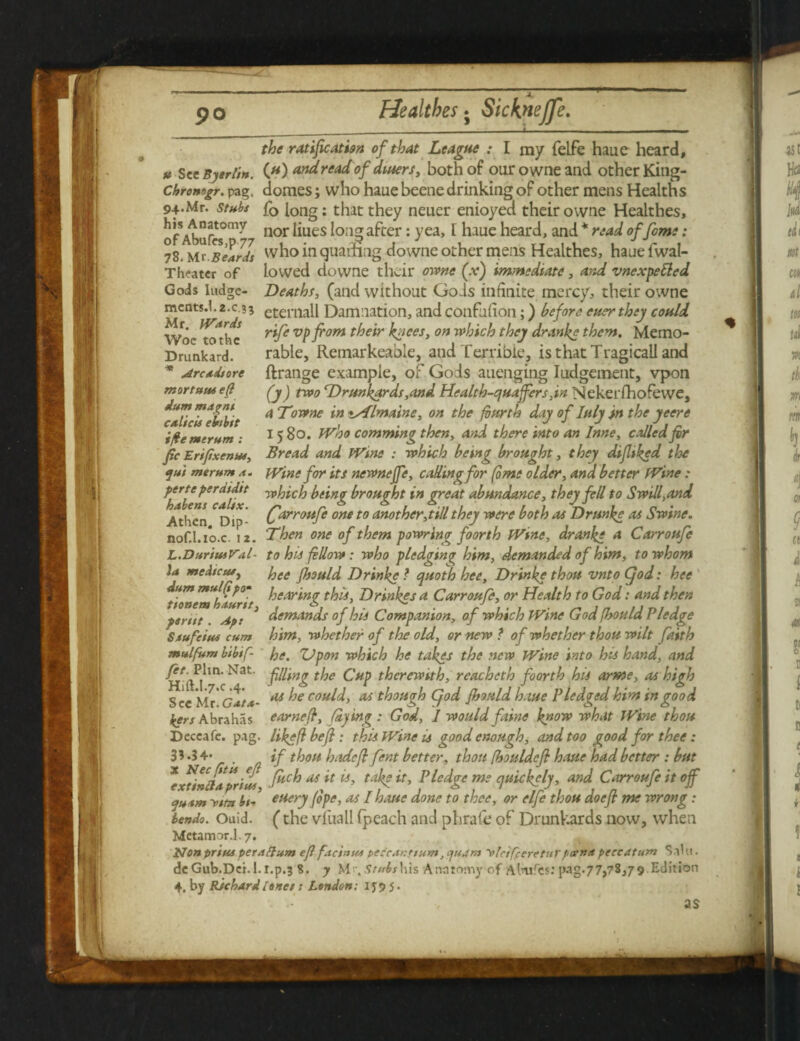 90
Healthes; Sicknesse.
the ratification of that League : I my selfe haue heard,
(u) and read of diuers, both of our owne and other King-
domes; who haue beene drinking of other mens Healths
so long: that they neuer enioyed their owne Healthes,
nor liues long after: yea, I haue heard, and * read of some :
who in quaffing downe other mens Healthes, haue swal-
lowed downe their owne (x) immediate, and vnexpected
Deaths, (and without Gods infinite mercy, their owne
eternall Damnation, and confusion;) before euer they could
rise vp from their knees, on which they dranke them. Memo-
rable, Remarkeable, and Terrible, is that Tragicall and
strange example, of Gods auenging Iudgement, vpon
(y) two Drunkards,and Health-quaffers,in Nekershofewe,
a Towne in Almaine, on the fourth day of Iuly in the yeere
1580. Who comming then, and there into an Inne, called for
Bread and Wine : which being brought, they disliked the
Wine for its newnesse, calling for some older, and better Wine :
which being brought in great abundance, they fell to Swill,and
Carrouse one to another,till they were both as Drunke as Swine.
Then one of them powring foorth Wine, dranke a Carrouse
to his fellow : who pledging him, demanded of him, to whom
hee should Drinke ? quoth hee, Drinke thou vnto God: hee
hearing this, Drinkes a Carrouse, or Health to God : and then
demands of his Companion, of which Wine God should Pledge
him, whether of the old, or new ? of whether thou wilt saith
he. Vpon which he takes the new Wine into his hand, and
filling the Cup therewith, reacheth foorth his arme, as high
as he could, as though God should haue Pledged him in good
earnest, saying : God, I would faine know what Wine thou
likest best : this Wine is good enough, and too good for thee :
if thou hadest sent better, thou shouldest haue had better : but
such as it is, take it, Pledge me quickely, and Carrouse it off
euery sope, as I haue done to thee, or else thou doest me wrong :
(the vsuall speach and phrase of Drunkards now, when
u See Byerlin.
Chronogr. pag.
94.Mr. Stubs
his Anatomy
of Abuses,p.77
78. Mr.Beards
Theater of
Gods Iudge-
ments.l.2.c.33
Mr. Wards
Woe to the
Drunkard.
* Arcadiore
mortuus est
dum magni
calicis ebibit
iste merum :
sic Erisixenus,
qui merum a-
perte perdidit
habens calix.
Athen. Dip-
nos.l.10.c. 12.
L.Durius Val-
la medicus,
dum mulsi po-
tionem haurit,
periit . Apt
Saufeius cum
mulsum bibis-
set. Plin. Nat.
Hist.l.7.c.4.
See Mr. Gata-
kers Abrahãs
Decease. pag.
33.34.
x Nec sitis est
extincta prius,
quam vita bi-
bendo. Ouid.
Metamor.l.7.
Non prius peractum est facinus peccantium, quam vlcisceretur pœna peccatum Salu.
de Gub.Dei.l.1.p.38. y Mr. Stubs his Anatomy of Abuses: pag.77,78,79 Edition
4. by Richard Iones : London: 1595.
as